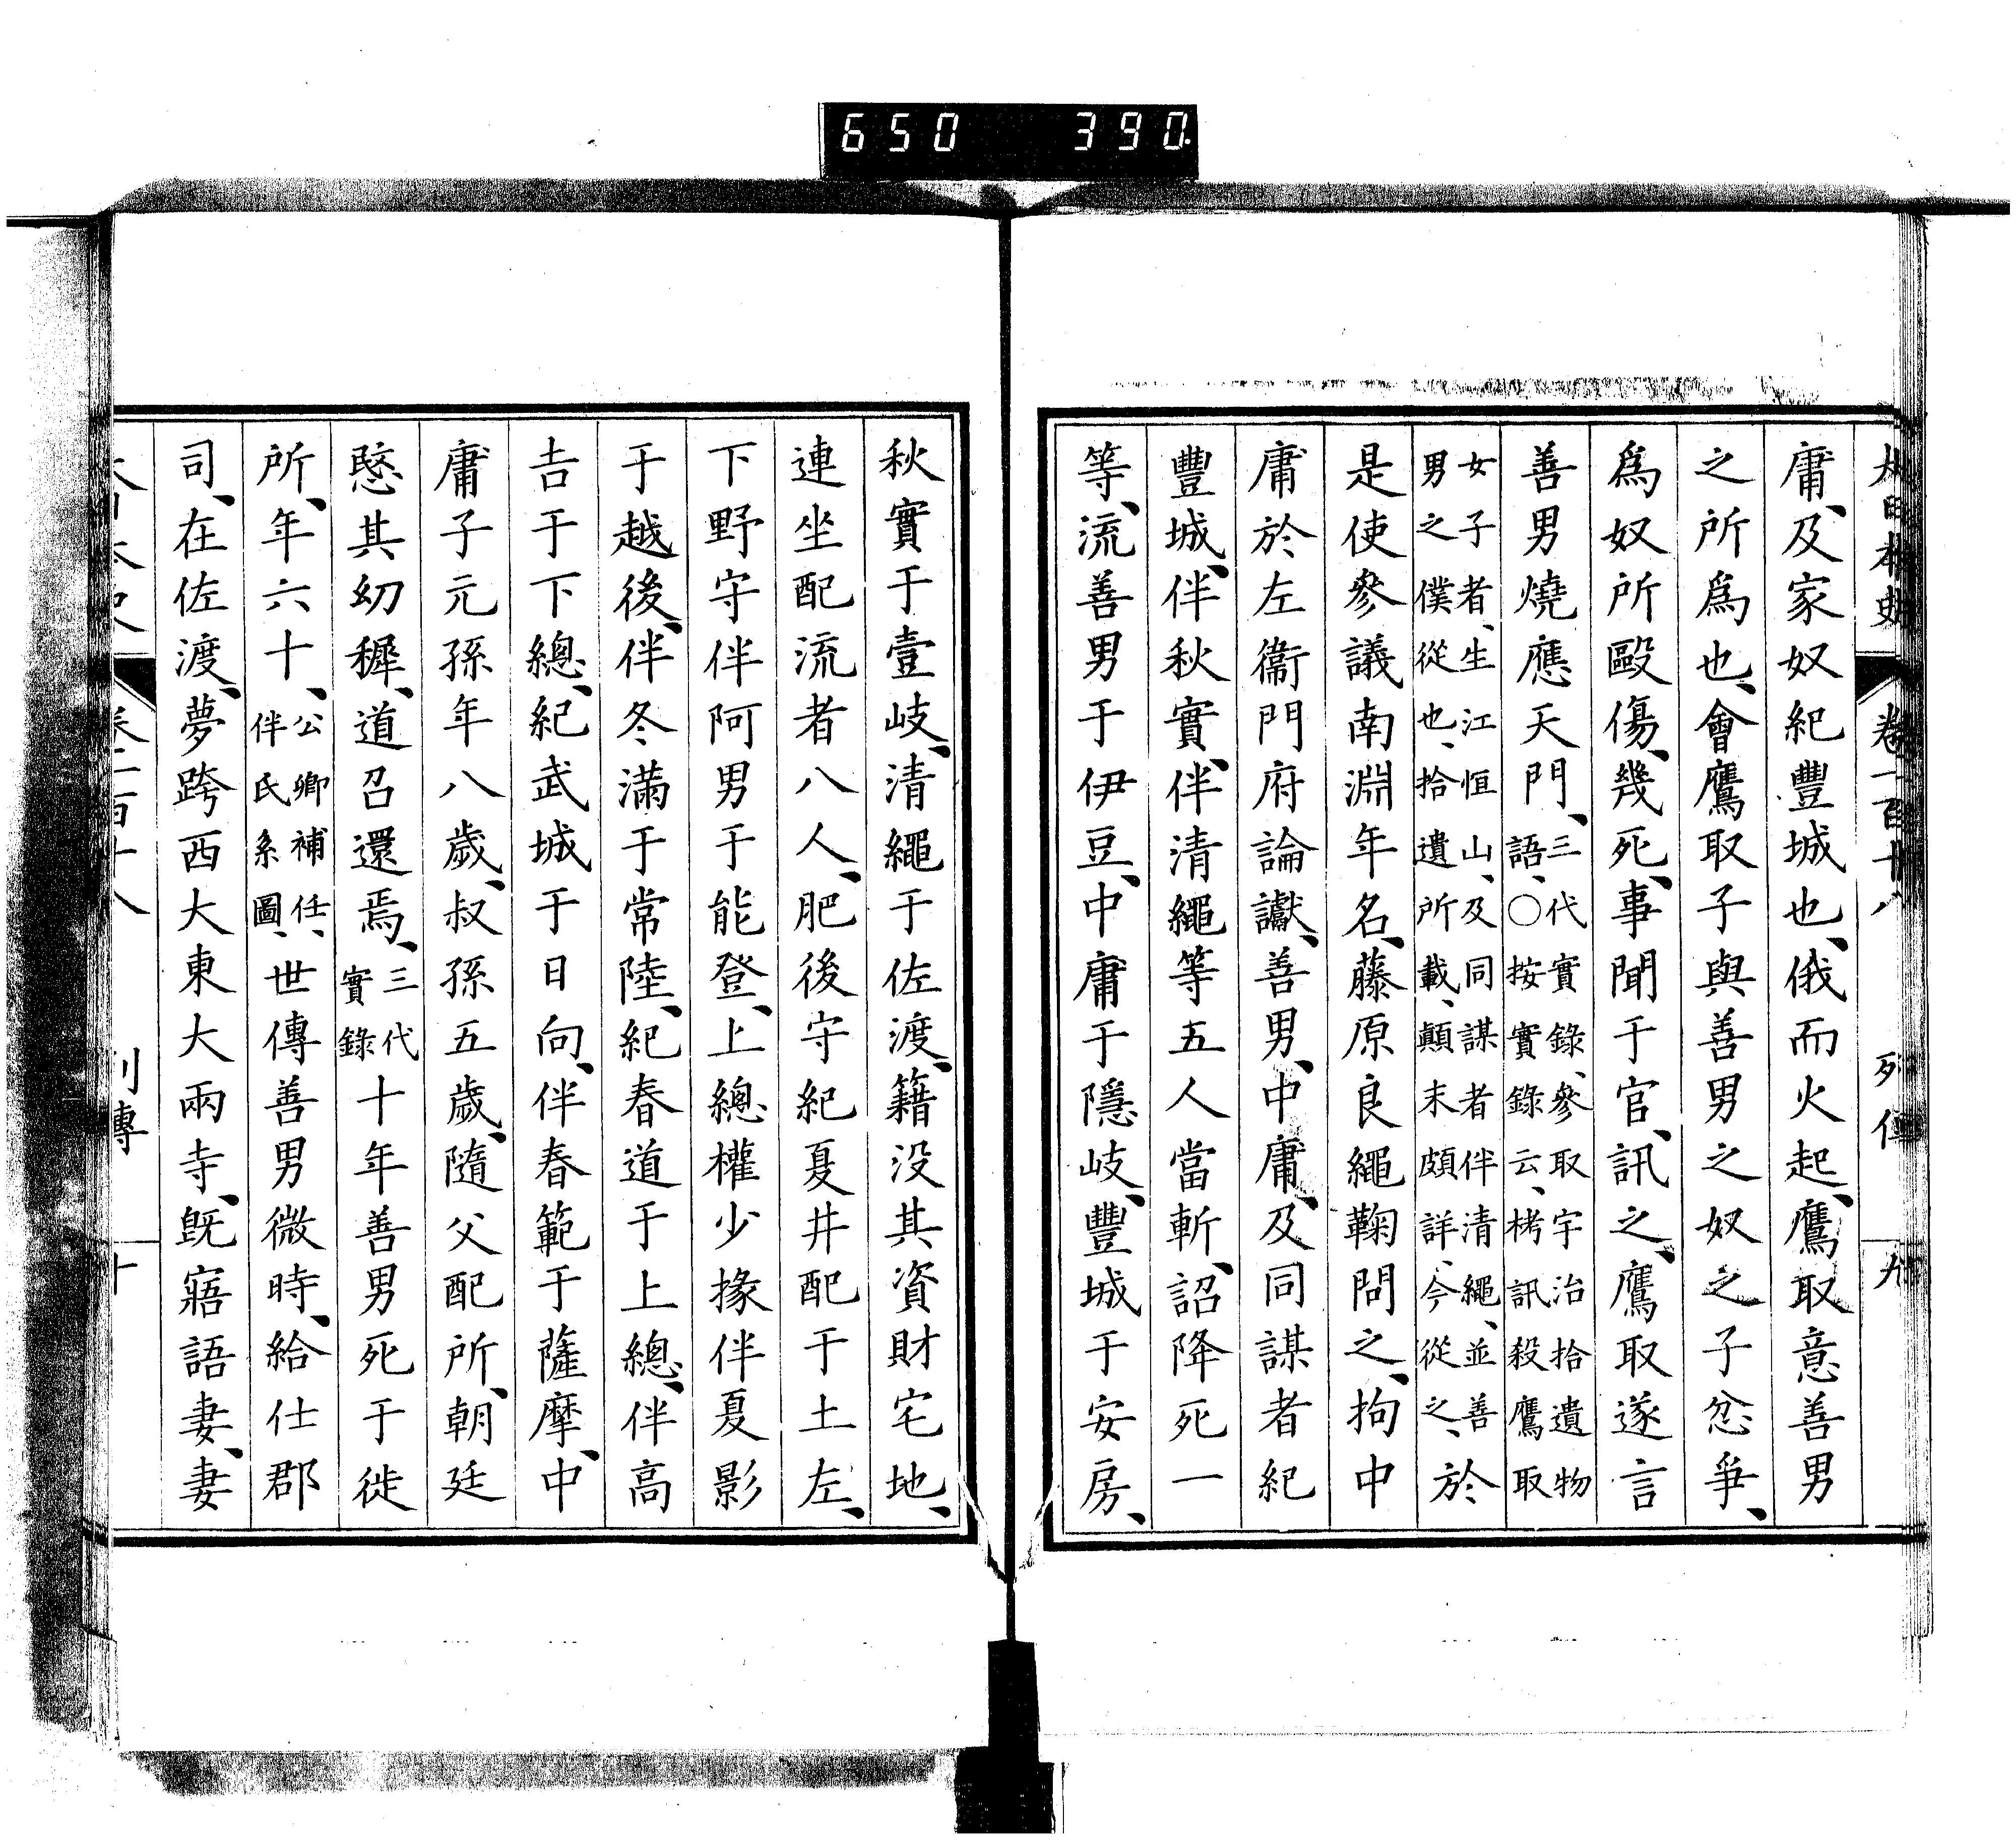 650 390
大日本史 卷一百十八 列傳 九
庸、及家奴紀豐城也、俄而火起、鷹取意善男
之所爲也、會鷹取子與善男之奴之子忿爭、
爲奴所毆傷、幾死、事聞于官、訊之、鷹取遂言
善男燒應天門、三代實錄、參取宇治拾遺物
語、〇按實錄云、栲訊殺鷹取
女子者、生江恒山、及同謀者伴清繩、並善
男之僕從也、拾遺所載、顛末頗詳、今從之、於
是使參議南淵年名、藤原良繩鞠問之、拘中
庸於左衞門府論讞、善男、中庸、及同謀者紀
豐城、伴秋實、伴清繩等五人當斬、詔降死一
等、流善男于伊豆、中庸于隱岐、豐城于安房、
秋實于壹岐、清繩于佐渡、籍没其資財宅地、
連坐配流者八人、肥後守紀夏井配于土左、
下野守伴阿男于能登、上總權少掾伴夏影
于越後、伴冬滿于常陸、紀春道于上總、伴高
吉于下總、紀武城于日向、伴春範于薩摩、中
庸子元孫年八歲、叔孫五歲、隨父配所、朝廷
愍其幼穉、道召還焉、三代
實錄十年善男死于徙
所、年六十、公卿補任、
伴氏系圖、世傳善男微時、給仕郡
司、在佐渡、夢跨西大東大兩寺、既寤語妻、妻
列傳 十